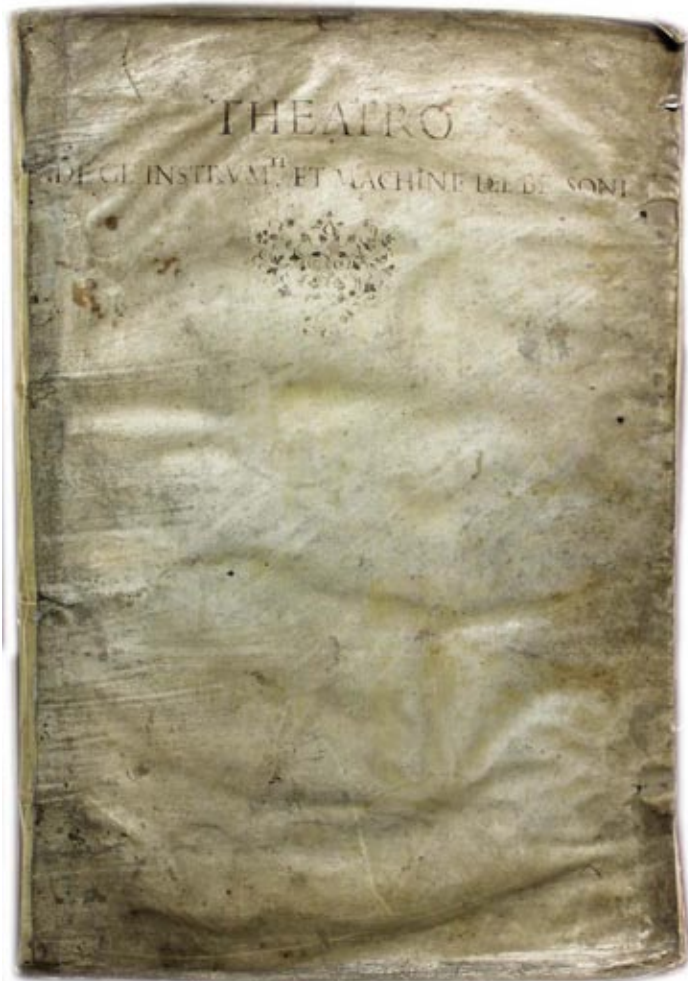 THEATRO
DE GL INSTRVM.TI ET MACHINE DE BESONI